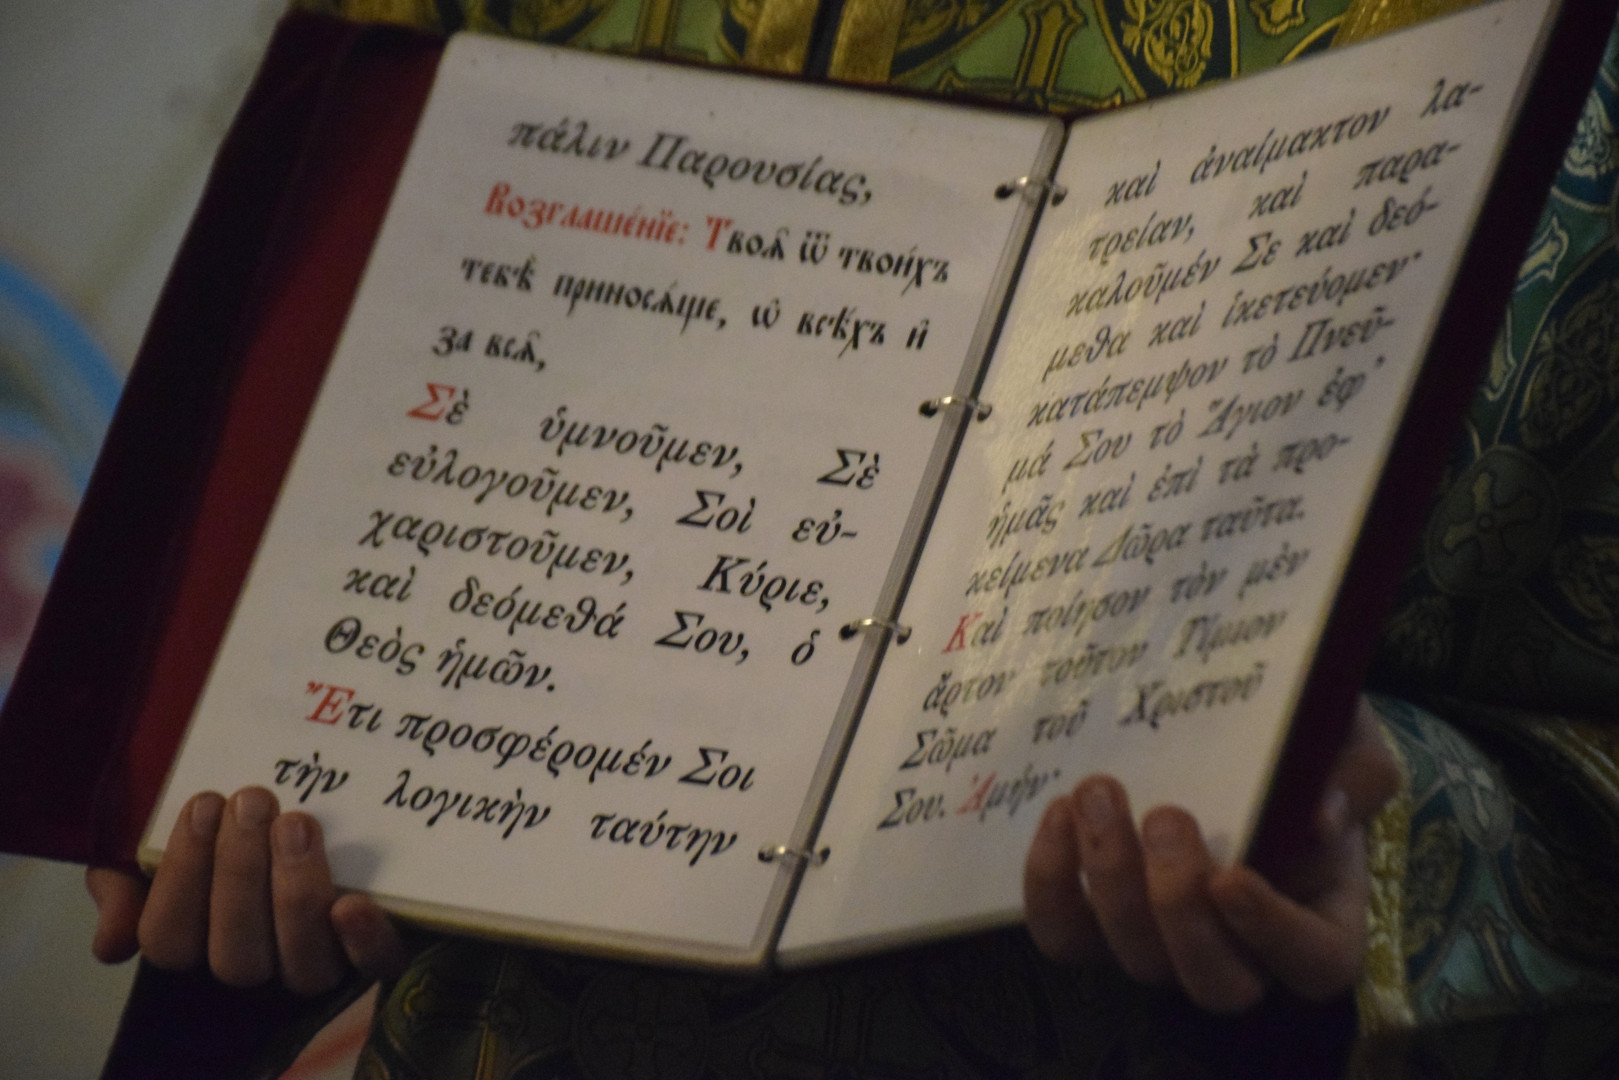 πάλιν Παρουσίας,
Возглаше́нїе: Твоѧ҄ ѿ твои́хъ
тебѣ̀ приносѧ́ще, ѡ҆ всѣ́хъ и҆
за всѧ҄,
Σὲ ὑμνοῦμεν, Σὲ
εὐλογοῦμεν, Σοὶ εὐ-
χαριστοῦμεν, Κύριε,
καὶ δεόμεθά Σου, ὁ
Θεὸς ἡμῶν.
Ἔτι προσφέρομέν Σοι
τὴν λογικὴν ταύτην
καὶ ἀναίμακτον λα-
τρείαν, καὶ παρα-
καλοῦμέν Σε καὶ δεό-
μεθα καὶ ἱκετεύομεν·
κατάπεμψον τὸ Πνεῦ-
μά Σου τὸ Ἅγιον ἐφ’
ἡμᾶς καὶ ἐπὶ τὰ προ-
κείμενα Δῶρα ταῦτα.
Καὶ ποίησον τὸν μὲν
ἄρτον τοῦτον Τίμιον
Σῶμα τοῦ Χριστοῦ
Σου. Ἀμήν·